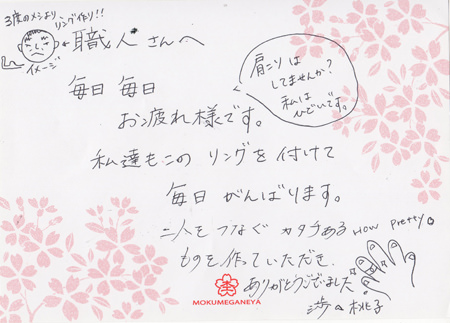 3度のメシより
リング作り!!
イメージ
職人さんへ
毎日毎日
お疲れ様です。
肩こりは
してませんか?
私は
ひどいです。
私達もこのリングを付けて
毎日がんばります。
二人をつなぐカタチある
ものを作っていただき、
ありがとうございました
How Pretty
渉 桃子
MOKUMEGANEYA